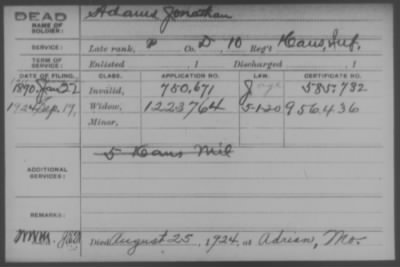 DEAD
NAME OF SOLDIER: Adams Jonathan
SERVICE: Late rank, P Co. D, 10 Reg't Kans. Inf.
TERM OF SERVICE: Enlisted , 1 Discharged , 1
DATE OF FILING. CLASS. APPLICATION NO. LAW. CERTIFICATE NO.
1890. Jan 22 Invalid, 750,671 585,782
1924 Sep. 19, Widow, 1223764 5-1-20 956436
Minor,
ADDITIONAL SERVICES: 5 Kans Mil
REMARKS:
Died August 25, 1924, at Adrian, Mo.